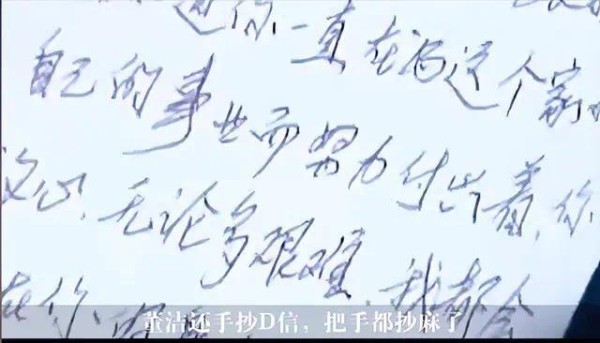 你一直在为这个家
自己的事业而努力付出着,你
放心,无论多艰难,我都会
在你
董洁还手抄D信,把手都抄麻了